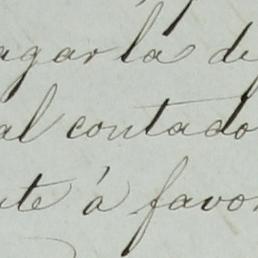 agarla de
al contado
te á favor